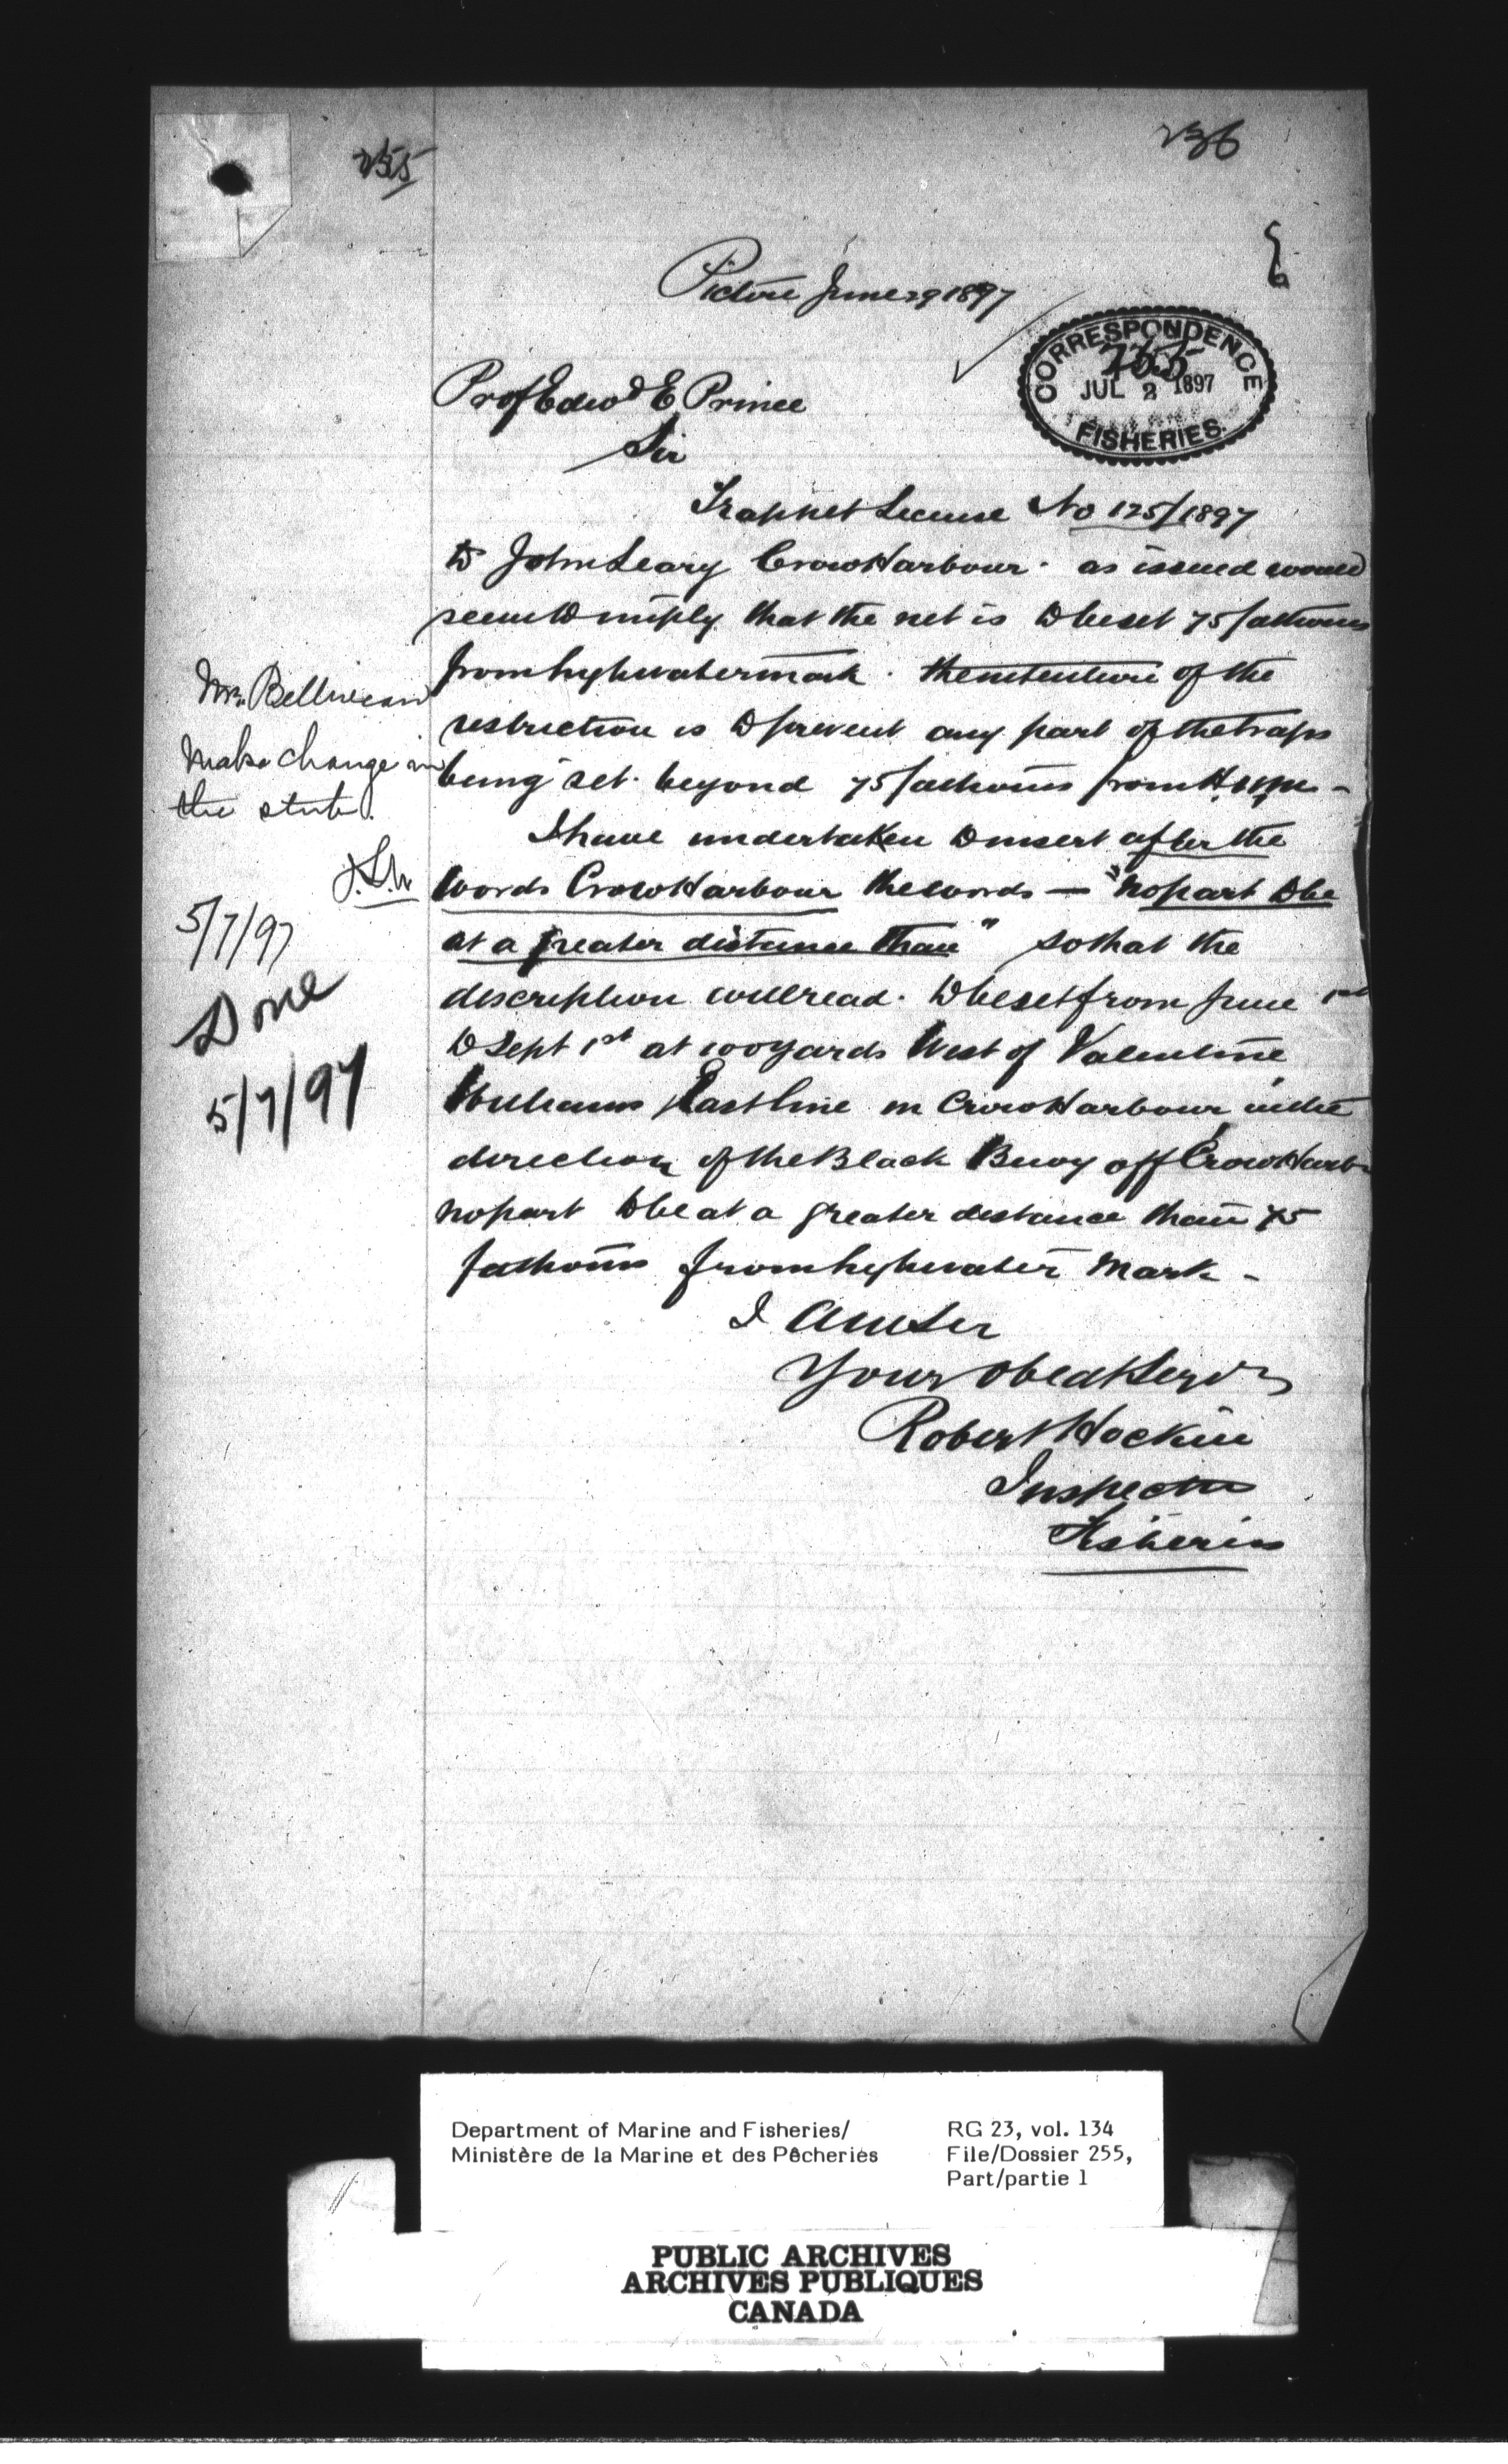 255
236
Pictou June 29 1897
CORRESPONDENCE
255
JUL 2 1897
FISHERIES.
Prof Edwd E Prince
Sir
Trapnet License No 125/1897
to John Leary Crow Harbour. as issued would
seem to imply that the net is to be set 75 fathoms
from high water mark. the intention of the
restriction is to prevent any part of the traps
being set beyond 75 fathoms from H.W.M. -
I have undertaken to insert after the
words Crow Harbour the words — "no part to be
at a greater distance than" so that the
description will read. to be set from June 1st
to Sept 1st at 100 yards West of Valentine
Williams East line in Crow Harbour in the
direction of the Black Buoy off Crow Harbr
no part to be at a greater distance than 75
fathoms from high water mark -
I am Sir
Your obedt Servt
Robert Hockin
Inspector
Fisheries
Mr. Belliveau
Make change in
the stub.
5/7/97
Done
5/7/97
Department of Marine and Fisheries/
Ministère de la Marine et des Pêcheries
RG 23, vol. 134
File/Dossier 255,
Part/partie 1
PUBLIC ARCHIVES
ARCHIVES PUBLIQUES
CANADA